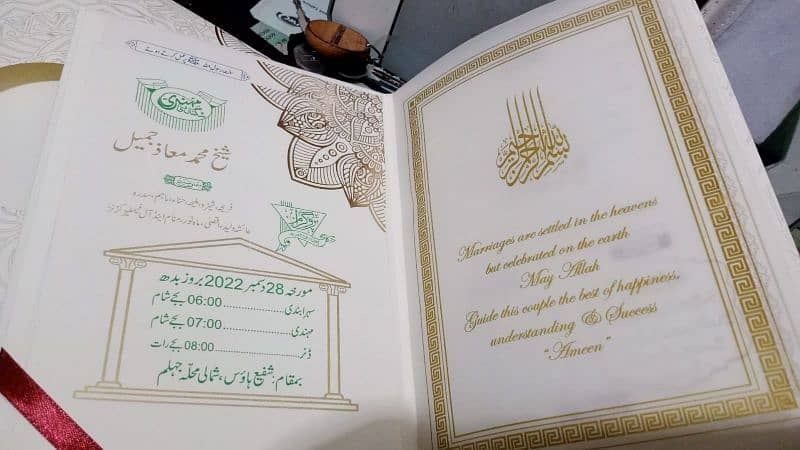 مہندی
شیخ محمد معاذ جمیل
پروگرام
مورخہ 28 دسمبر 2022 بروز بدھ
سہرا بندی..........06:00 بجے شام
مہندی..........07:00 بجے شام
ڈنر..........08:00 بجے رات
بمقام: شفیع ہاؤس، شمالی محلہ جہلم
بسم الله الرحمن الرحيم
Marriages are settled in the heavens
but celebrated on the earth
May Allah
Guide this couple the best of happiness,
understanding & Success
"Ameen"